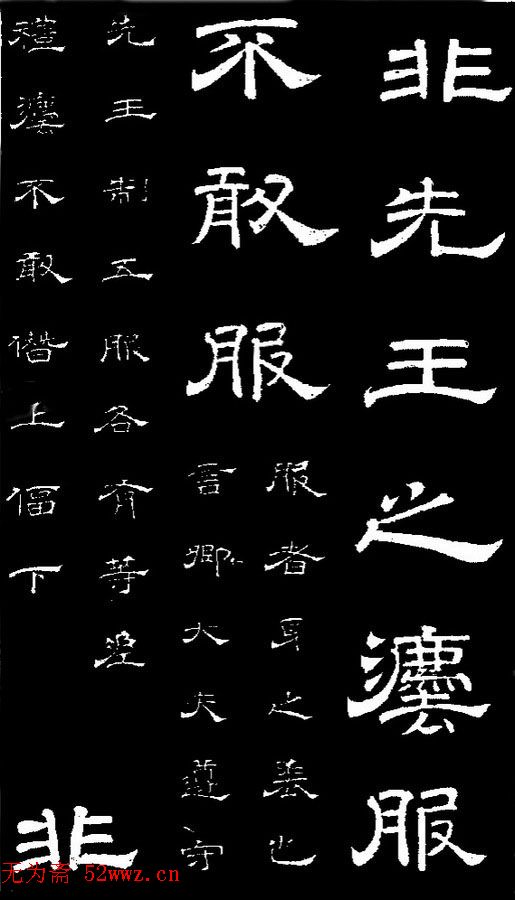 非先王之灋服
不敢服
服者身之表也
先王制五服各有等差
言卿大夫遵守
禮灋不敢僭上偪下
非
无为斋 52wwz.cn